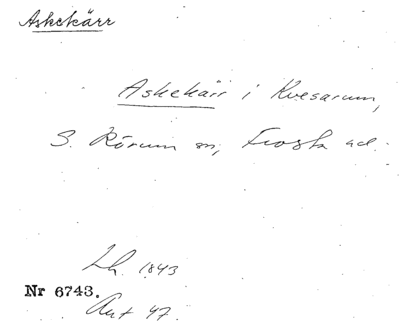 Askekärr
Askekärr i Kvesarum,
S. Rörum sn, Frosta hd.
Lh. 1843
Nr 6743.
Ant 47.